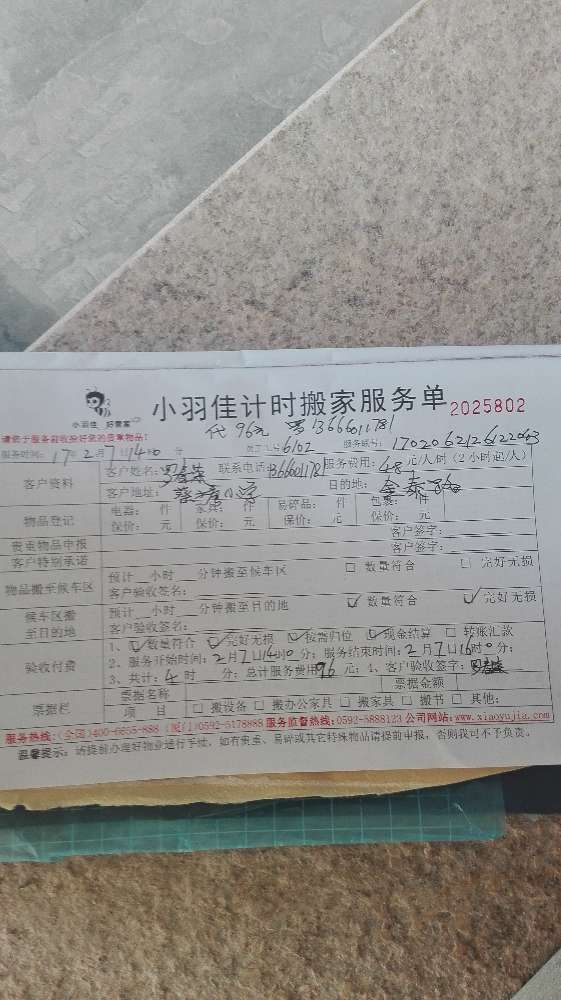 小羽佳 好管家
小羽佳计时搬家服务单 2025802
代 96元 罗13666011781
请您于服务前收拾好您的贵重物品!
服务时间: 17年 2月 7日 14时0分 员工工号6102 服务账号: 17020621261220
客户资料
客户姓名: 罗 联系电话: 13666011781 服务费用: 48元/人/时 (2小时起/人)
客户地址: 小学 目的地: 金泰
物品登记
电器: 件 家具: 件 易碎品: 件 包裹: 件
保价: 元 保价: 元 保价: 元 保价: 元
贵重物品申报 客户签字:
客户特别承诺 客户签字:
物品搬至候车区
预计 小时 分钟搬至候车区 □ 数量符合 □ 完好无损
客户验收签名:
候车区搬至目的地
预计 小时 分钟搬至目的地 ☑ 数量符合 ☑ 完好无损
客户验收签名:
验收付费
1、☑数量符合 ☑完好无损 ☑按需归位 ☑现金结算 □ 转账汇款
2、服务开始时间: 2月7日14时0分; 服务结束时间: 2月7日16时0分;
3、共计: 4时 分; 总计服务费用96元; 4、客户验收签字: 罗
票据栏
票据名称 票据金额
项 目 □ 搬设备 □ 搬办公家具 □ 搬家具 □ 搬书 □ 其他:
服务热线:(全国)400-6655-888 (厦门)0592-5178888 服务监督热线:0592-5888123 公司网站:www.xiaoyujia.com
温馨提示: 请提前办理好物业通行手续, 如有贵重、易碎或其它特殊物品请提前申报, 否则我司不予负责。